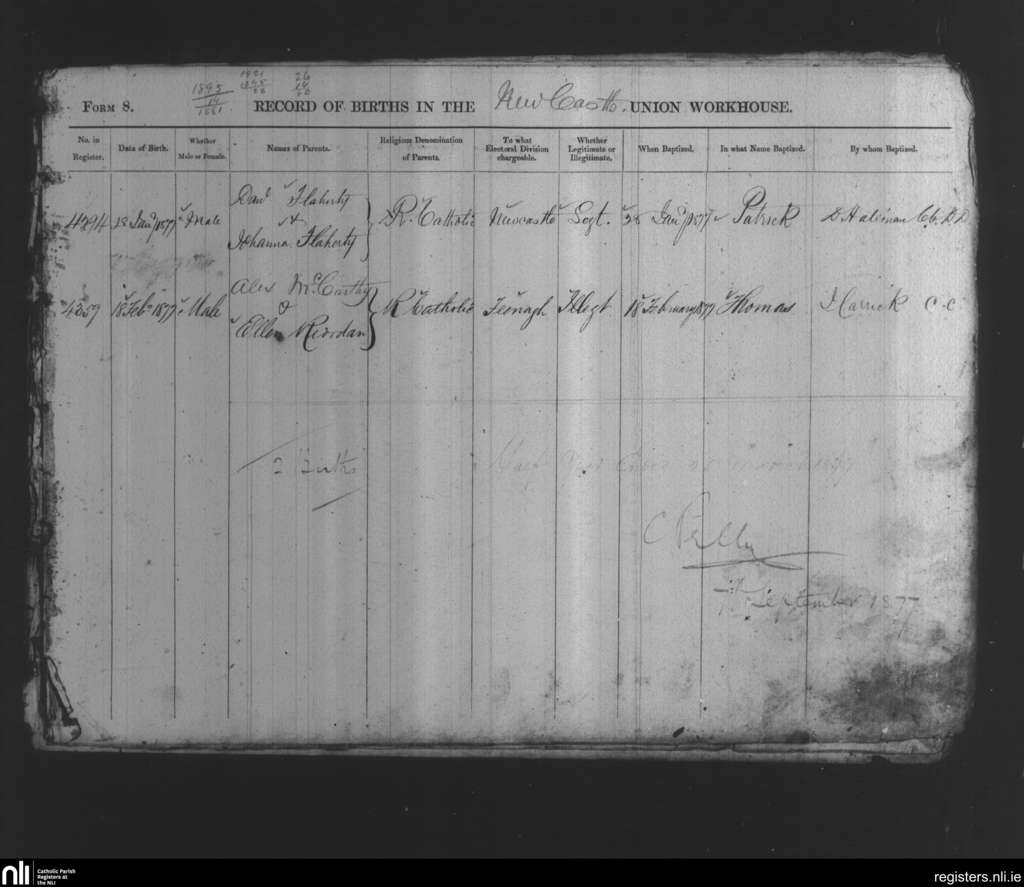 1895
14
1881
1921
1895
26
26
14
FORM 8.
RECORD OF BIRTHS IN THE New Castle UNION WORKHOUSE.
No. in Register.
Date of Birth.
Whether Male or Female.
Names of Parents.
Religious Denomination of Parents.
To what Electoral Division chargeable.
Whether Legitimate or Illegitimate.
When Baptized.
In what Name Baptized.
By whom Baptized.
Jany 1877 Male Davd Flaherty & Johanna Flaherty R. Catholic Newcastle Legt. Jany 1877 Patrick
18 Feby 1877 Male Alex McCarthy & Ellen Reordan R Catholic Feenagh Illegt 18 February 1877 Thomas J Carrick C C
2 Births
C Kelly
7th September 1877
nli
Catholic Parish
Registers at
the NLI
registers.nli.ie